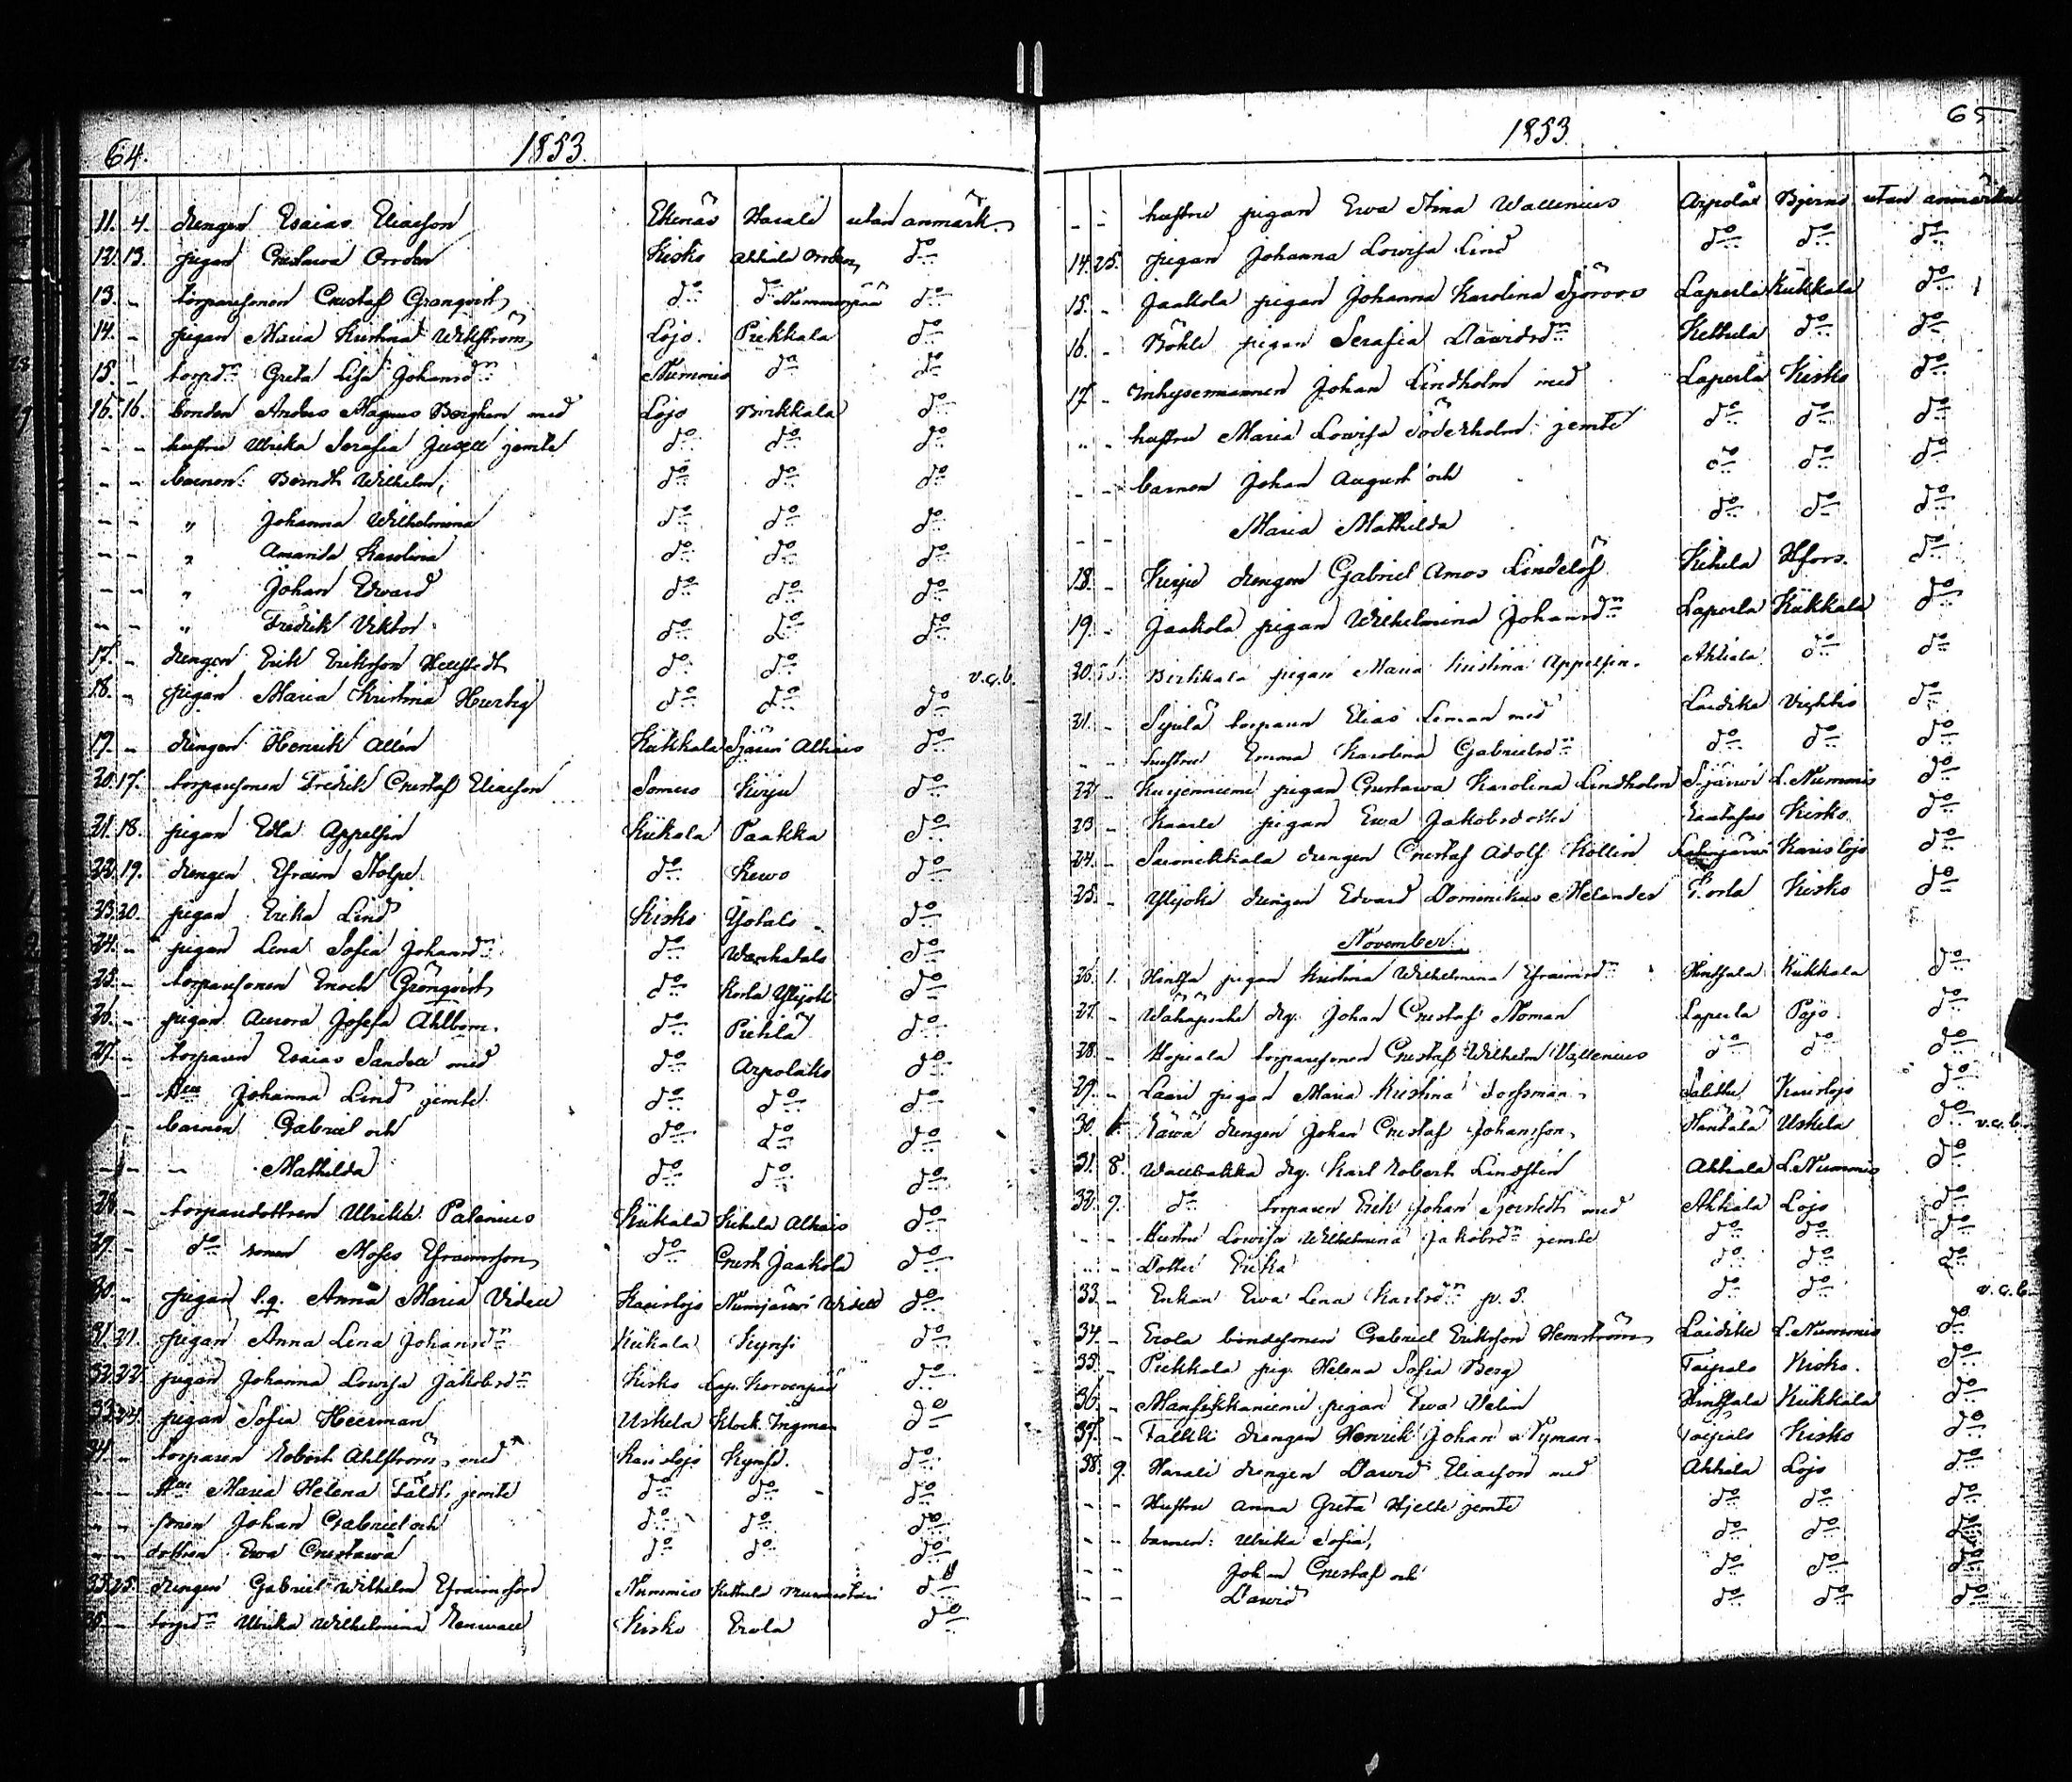 64. 1853.
11. 4. drengen Esaias Eliasson Ekenäs Harali utan anmärk.
12. 13. pigan Gustawa Orrden Kisko Ahtiala Orrden do
13. - torparesonen Gustaf Grönqvist do do Nummenpää do
14. - pigan Maria Kristina Wikström Lojo. Pirkkala do
15. - torpdn Greta Lisa Johansdn Nummis do do
16. 16. bonden Anders Magnus Berghem med Lojo Pirkkala do
- - hustru Ulrika Serafia Jusell jemte do do do
- - barnen: Berndt Wilhelm, do do do
- - " Johanna Wilhelmina do do do
- - " Amanda Karolina do do do
- - " Johan Edward do do do
- - " Fredrik Viktor do do do
17. - drengen Erik Eriksson Hellstedt do do v.g.b.
18. - pigan Maria Kristina Hurtig do do do
19. - drengen Henrik Allén Kiikkala Sjärvi Alhais do
20. 17. torparesonen Fredrik Gustaf Eliasson Somero Kirju do
21. 18. pigan Edla Appelsin Kiikala Paakka do
22. 19. drengen Efraim Stolpe do Kewo do
23. 20. pigan Erika Lind Kisko Yotals do
24. - pigan Lena Sofia Johansdn do Wanhatalo do
25. - torparesonen Enoch Grönqvist do Korla Ylijoki do
26. - pigan Aurora Josefa Ahlbom. do Pirhla do
27. - torparen Esaias Sandell med do Arpolaks do
- Hu Johanna Lind jemte do do do
- barnen Gabriel och do do do
- - - Mathilda do do do
28. - torparedottren Ulrika Palenius Kiikala Kihula Alhais do
29. - do sonen Moses Efraimsson do Gust. Jaakola do
30. - pigan l.q. Anna Maria Videll Karislojo Numijärvi Widell do
31. 21. pigan Anna Lena Johansdn Kiikala Kynsi do
32. 22. pigan Johanna Lowisa Jakobsdn Kisko Lap. Korvenpää do
33. 24. pigan Sofia Heerman Uskela Klock. Ingman do
34. - torparen Robert Ahlström, med Karislojo Kynsi. do
- - Hu Maria Helena Fäldt, jemte do do do
- - sonen Johan Gabriel och do do do
- - dottren Ewa Gustawa do do do
35. 25. drengen Gabriel Wilhelm Efraimsson Nummis Kettula do
36. - torpdn Ulrika Wilhelmina Renwall Kisko Erola do
65. 1853.
- - hustru pigan Ewa Stina Wallenius Arpolax Bjerno utan anmärkn
14. 25. pigan Johanna Lowisa Lind do do do
15. - Jaakola pigan Johanna Karolina Sjöroos Laperla Kiikkala do
16. - Böhle pigan Serafia Davidsdn Kettula do do
17. - Inhysemannen Johan Lindholm med Laperla Kisko do
" - hustru Maria Lowisa Söderholm jemte do do do
- - barnen Johan August och do do do
- - Maria Mathilda do do do
18. - Kirju drengen Gabriel Amos Lindelöf Kihula Hfors. do
19. - Jaakola pigan Wilhelmina Johansdn Laperla Kiikkala do
20. Pirkkala pigan Maria Kristina Appelsin. Ahtiala do do
21. - torparen Elias Leman med Laidike Vichtis do
" - hustru Emma Karolina Gabrielsdn do do do
22. - Kurjenniemi pigan Gustawa Karolina Lindholm Sjärwi L. Nummis do
23. - Kaarle pigan Ewa Jakobsdotter Kisko do
24. - drengen Gustaf Adolf Köllin Karislojo do
25. - Ylijoki drengen Edvard Dominikus Helander Korla Kisko do
November.
26. 1. Hintsa pigan Kristina Wilhelmina Efraimsdn Hintsala Kiikkala do
27. - dreg. Johan Gustaf Noman Laperla Pojo. do
28. - Hopiala torparesonen Gustaf Wilhelm Wallenius do do do
29. - Laari pigan Maria Kristina Forssman, Karislojo do
30. drengen Johan Gustaf Johansson, Uskela do v.g.b.
31. 8. Wallbakka dg. Karl Robert Lindstén Ahtiala L. Nummis do
32. 9. do torparen Erik Johan Sjöstedt med Ahtiala Lojo do
- - Hustru Lowisa Wilhelmina Jakobsdn jemte do do do
- - Dotter Erika do do do
33. - Enkan Ewa Lena Karlsdn p. S. do do v.g.b.
34. - Erola bondesonen Gabriel Eriksson Hemström Laidike L. Nummis do
35. - Pirkkala pig. Helena Sofia Berg Taipals Kisko. do
36. - pigan Ewa Velin Hintsala Kiikkala do
37. - Falkki drengen Henrik Johan Nyman. Taipals Kisko do
38. 9. Harali drengen David Eliasson med Ahtiala Lojo do
- - Hustru Anna Greta Hjelte jemte do do do
- - barnen: Ulrika Sofia, do do do
- - Johan Gustaf och do do do
- - David do do do